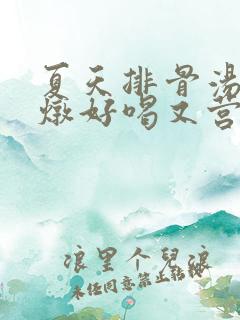 夏天排骨汤
燉好喝又营
浪里个儿浪
未任同意禁止转载